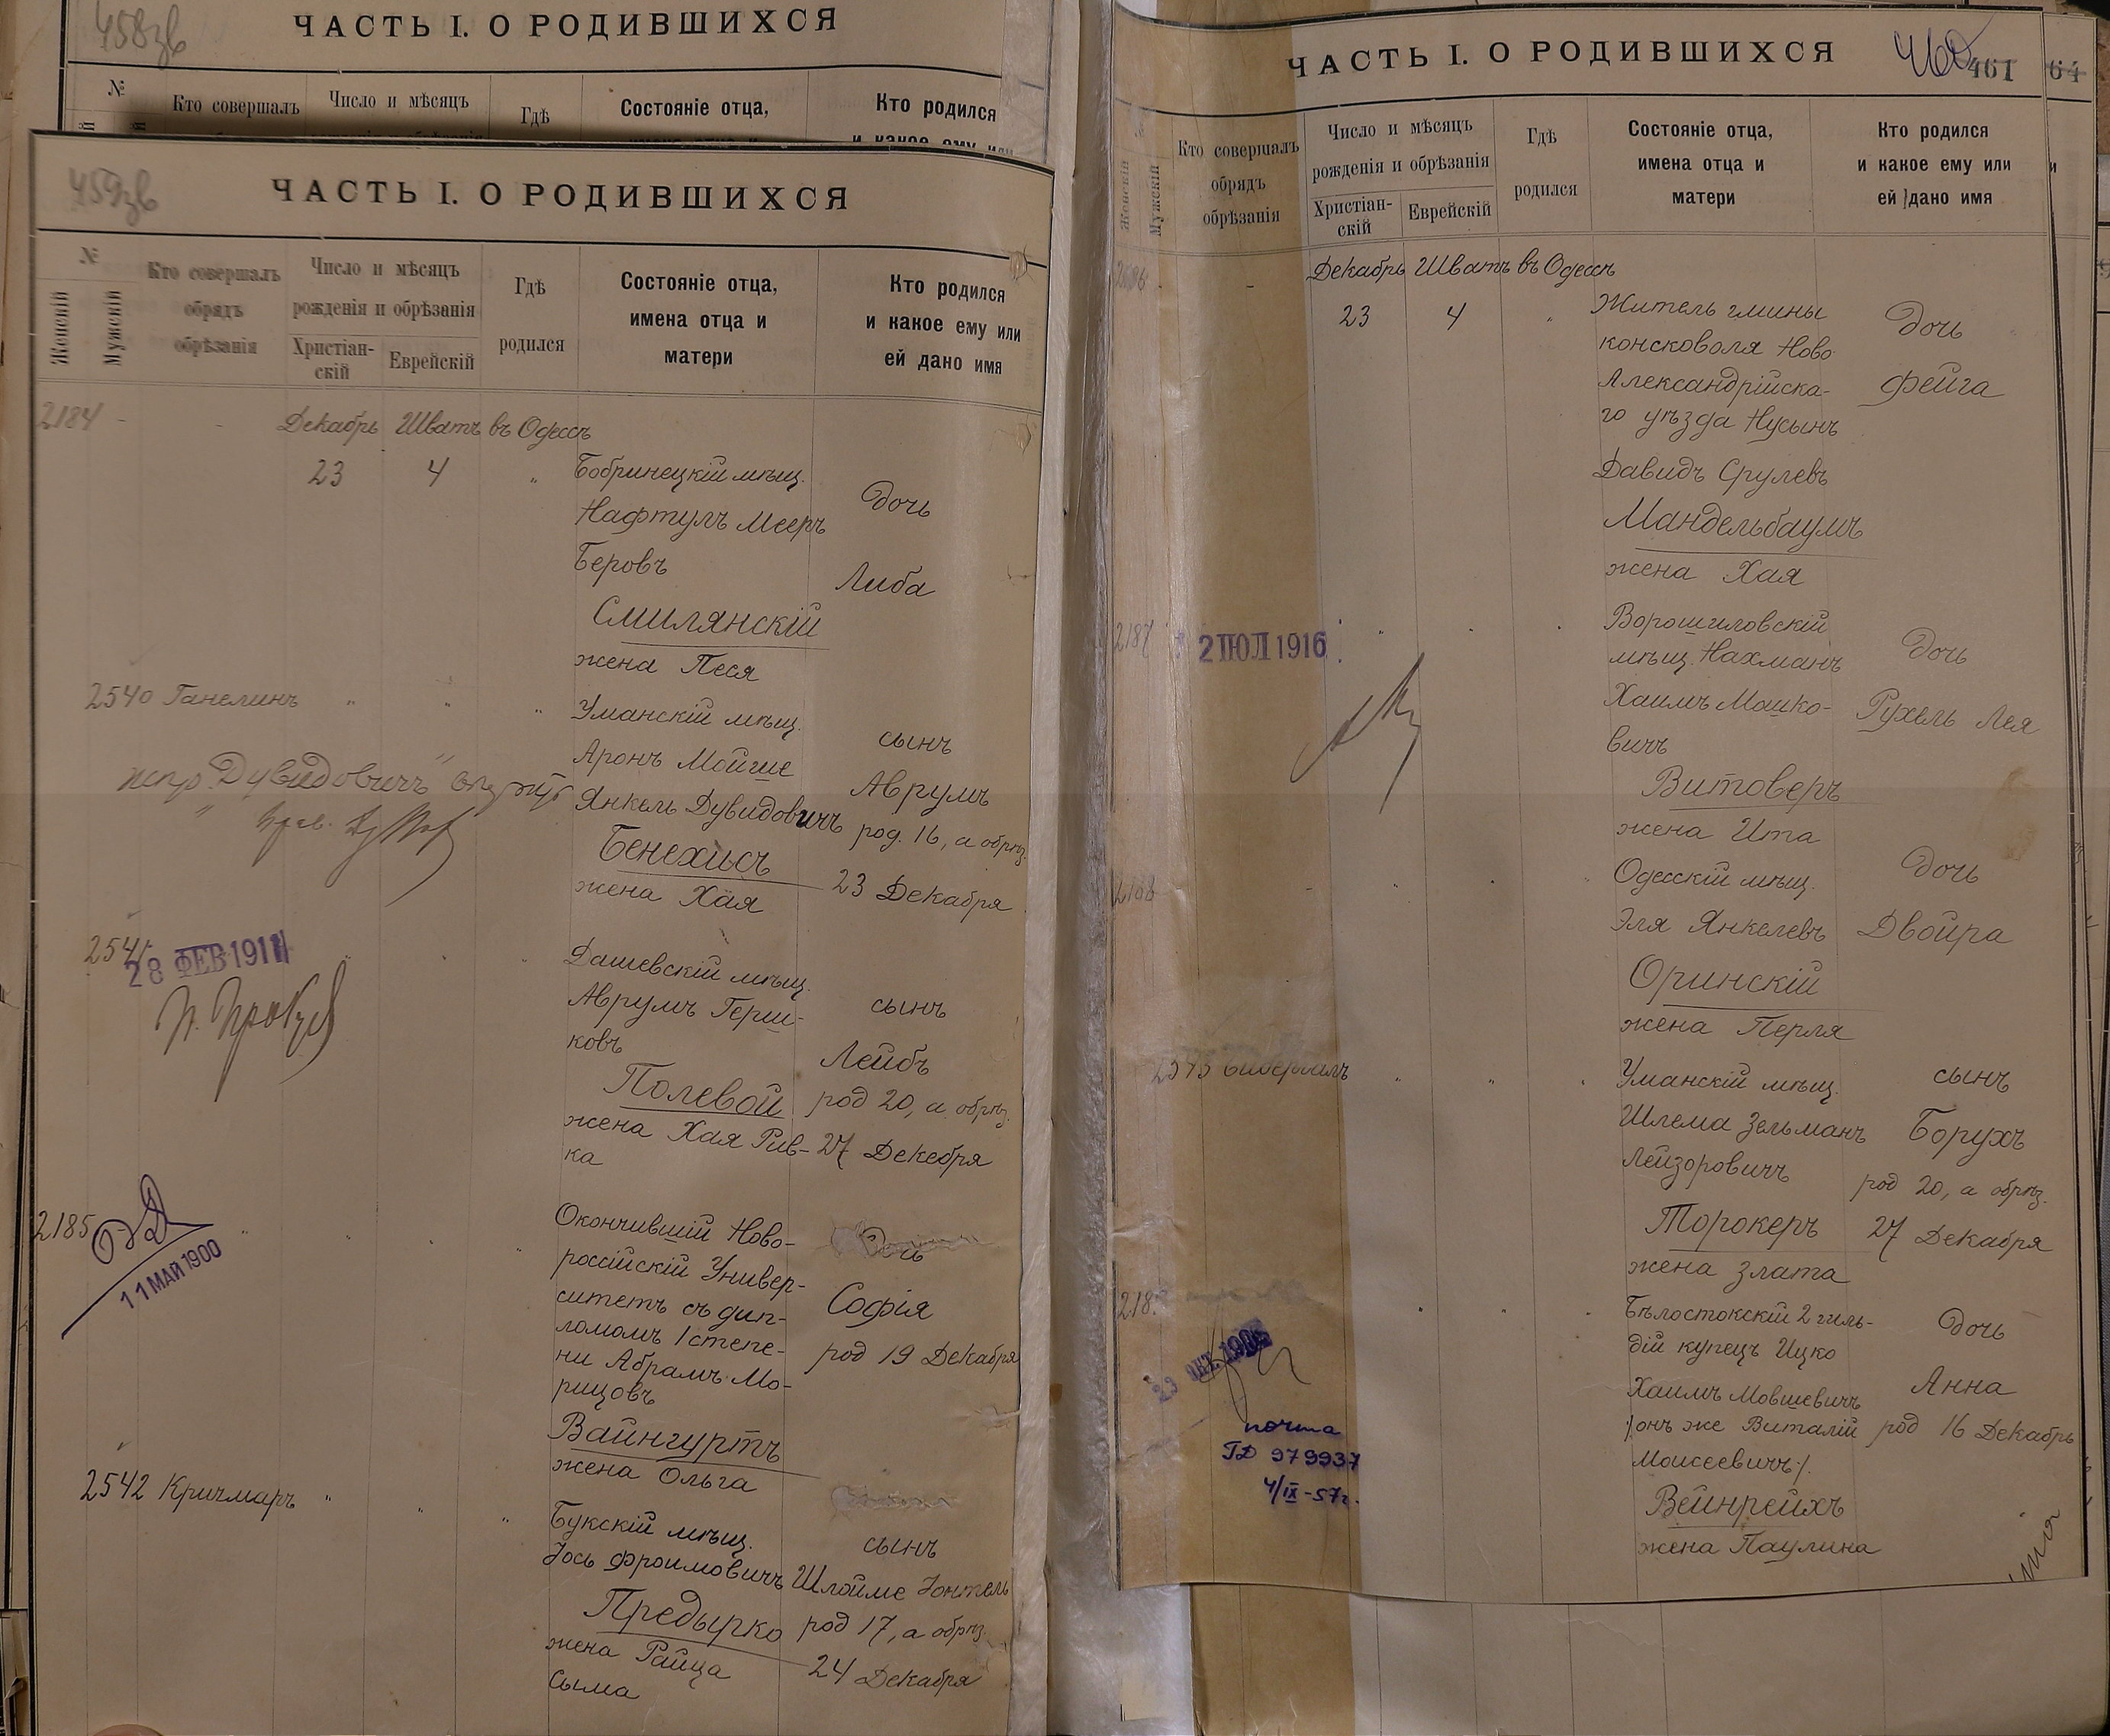 458зв
ЧАСТЬ I. О РОДИВШИХСЯ
№
Кто совершалъ
Число и мѣсяцъ
Гдѣ
Состояніе отца,
Кто родился
459зв
ЧАСТЬ I. О РОДИВШИХСЯ
№
Женскій
Мужскій
Кто совершалъ
обрядъ
обрѣзанія
Число и мѣсяцъ
рожденія и обрѣзанія
Христіан-
скій
Еврейскій
Гдѣ
родился
Состояніе отца,
имена отца и
матери
Кто родился
и какое ему или
ей дано имя
2184 - - Декабрь Шватъ въ Одессѣ
23 4 " Бобринецкій мѣщ.
Нафтулъ Мееръ
Беровъ
Смилянскій
жена Песя
Дочь
Либа
2540 Ганелинъ " " " Уманскій мѣщ.
Аронъ Мойше
Янкель Дувидовичъ
Бенехисъ
жена Хая
сынъ
Аврумъ
род. 16, а обрѣз.
23 Декабря
испр. "Дувидовичъ"
2541
28 ФЕВ 1911
Дашевскій мѣщ.
Аврумъ Герш-
ковъ
Полевой
жена Хая Рив-
ка
сынъ
Лейбъ
род 20, а обрѣз.
27 Декебря
2185
11 МАЙ 1900
Окончившій Ново-
россійскій Универ-
ситетъ съ дип-
ломомъ 1 степе-
ни Абрамъ Мо-
рицовъ
Вайнгуртъ
жена Ольга
Дочь
Софія
род 19 Декабря
2542 Кричмаръ " " " Букскій мѣщ.
Іось Фроимовичъ
Предырко
жена Райца
Сыма
сынъ
Шлойме Іонтель
род 17, а обрѣз.
24 Декабря
ЧАСТЬ I. О РОДИВШИХСЯ
460
461
64
Женскій
Мужскій
Кто совершалъ
обрядъ
обрѣзанія
Число и мѣсяцъ
рожденія и обрѣзанія
Христіан-
скій
Еврейскій
Гдѣ
родился
Состояніе отца,
имена отца и
матери
Кто родился
и какое ему или
ей дано имя
2186 - Декабрь Шватъ въ Одессѣ
23 4 " Житель гмины
консковоля Ново
Александрійска-
го уѣзда Нусынъ
Давидъ Срулевъ
Мандельбаумъ
жена Хая
Дочь
Фейга
2187
2 ІЮЛ 1916
Ворошиловскій
мѣщ. Нахманъ
Хаимъ Машко-
вичъ
Витоверъ
жена Ита
Дочь
Рухель Лея
2188
Одесскій мѣщ.
Эля Янкелевъ
Оринскій
жена Перля
Дочь
Двойра
2543
Уманскій мѣщ.
Шлема Зельманъ
Лейзоровичъ
Торокеръ
жена Злата
сынъ
Борухъ
род 20, а обрѣз.
27 Декабря
218
Бѣлостокскій 2 гиль-
дій купецъ Ицко
Хаимъ Мовшевичъ
/онъ же Виталій
Моисеевичъ/.
Вейнрейхъ
жена Паулина
Дочь
Анна
род 16 Декабрь
почта
ГД 979937
4/IX-57г.